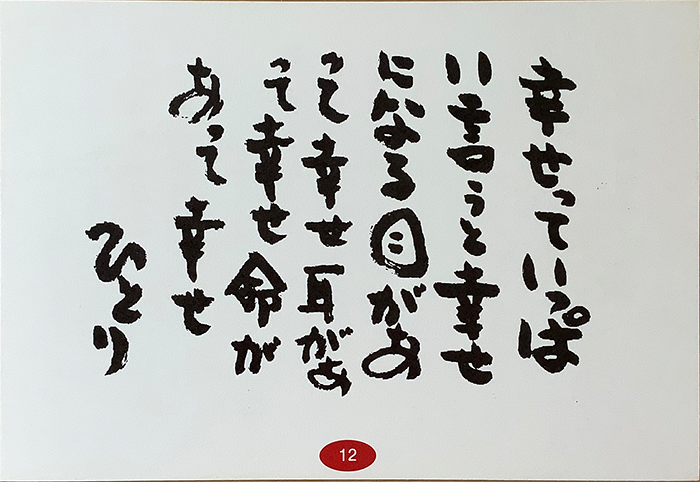 幸せっていっぱ
い言うと幸せ
になる目があ
って幸せ耳があ
って幸せ命が
あって幸せ
ひとり
12